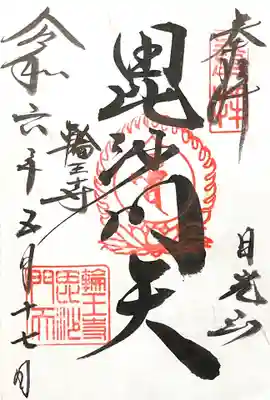 奉拝
日光山
毘沙門天
輪王寺
令和六年五月十七日
輪王寺
毘沙
門天